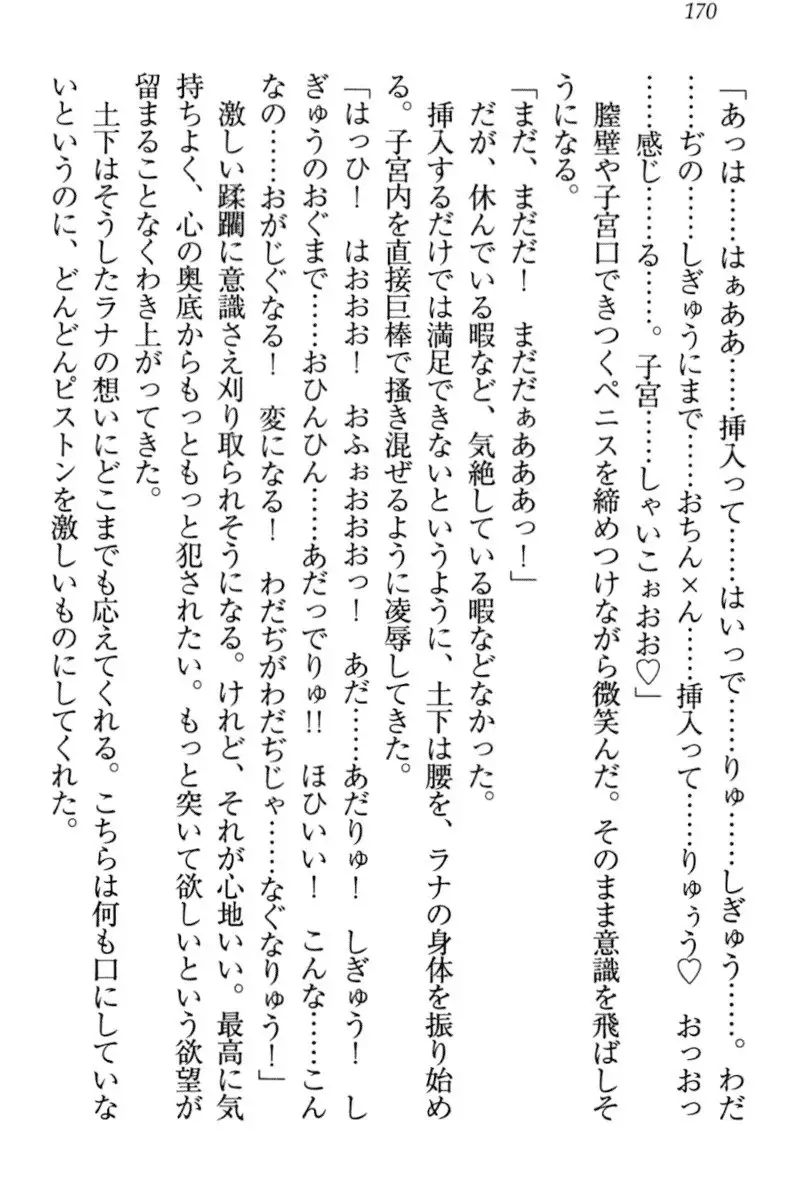 170
「あっは……はぁああ……挿入って……はいっで……りゅ……しぎゅう……。わだ
……ぢの……しぎゅうにまで……おちん×ん……挿入って……りゅぅう♡　おっおっ
……感じ……る……。子宮……しゃいこぉおお♡」
　膣壁や子宮口できつくペニスを締めつけながら微笑んだ。そのまま意識を飛ばしそ
うになる。
「まだ、まだだ！　まだだぁあああっ！」
　だが、休んでいる暇など、気絶している暇などなかった。
　挿入するだけでは満足できないというように、土下は腰を、ラナの身体を振り始め
る。子宮内を直接巨棒で掻き混ぜるように凌辱してきた。
「はっひ！　はおおお！　おふぉおおおっ！　あだ……あだりゅ！　しぎゅう！　し
ぎゅうのおぐまで……おひんひん……あだっでりゅ!!　ほひいい！　こんな……こん
なの……おがじぐなる！　変になる！　わだぢがわだぢじゃ……なぐなりゅう！」
　激しい蹂躙に意識さえ刈り取られそうになる。けれど、それが心地いい。最高に気
持ちよく、心の奥底からもっともっと犯されたい。もっと突いて欲しいという欲望が
留まることなくわき上がってきた。
　土下はそうしたラナの想いにどこまでも応えてくれる。こちらは何も口にしていな
いというのに、どんどんピストンを激しいものにしてくれた。